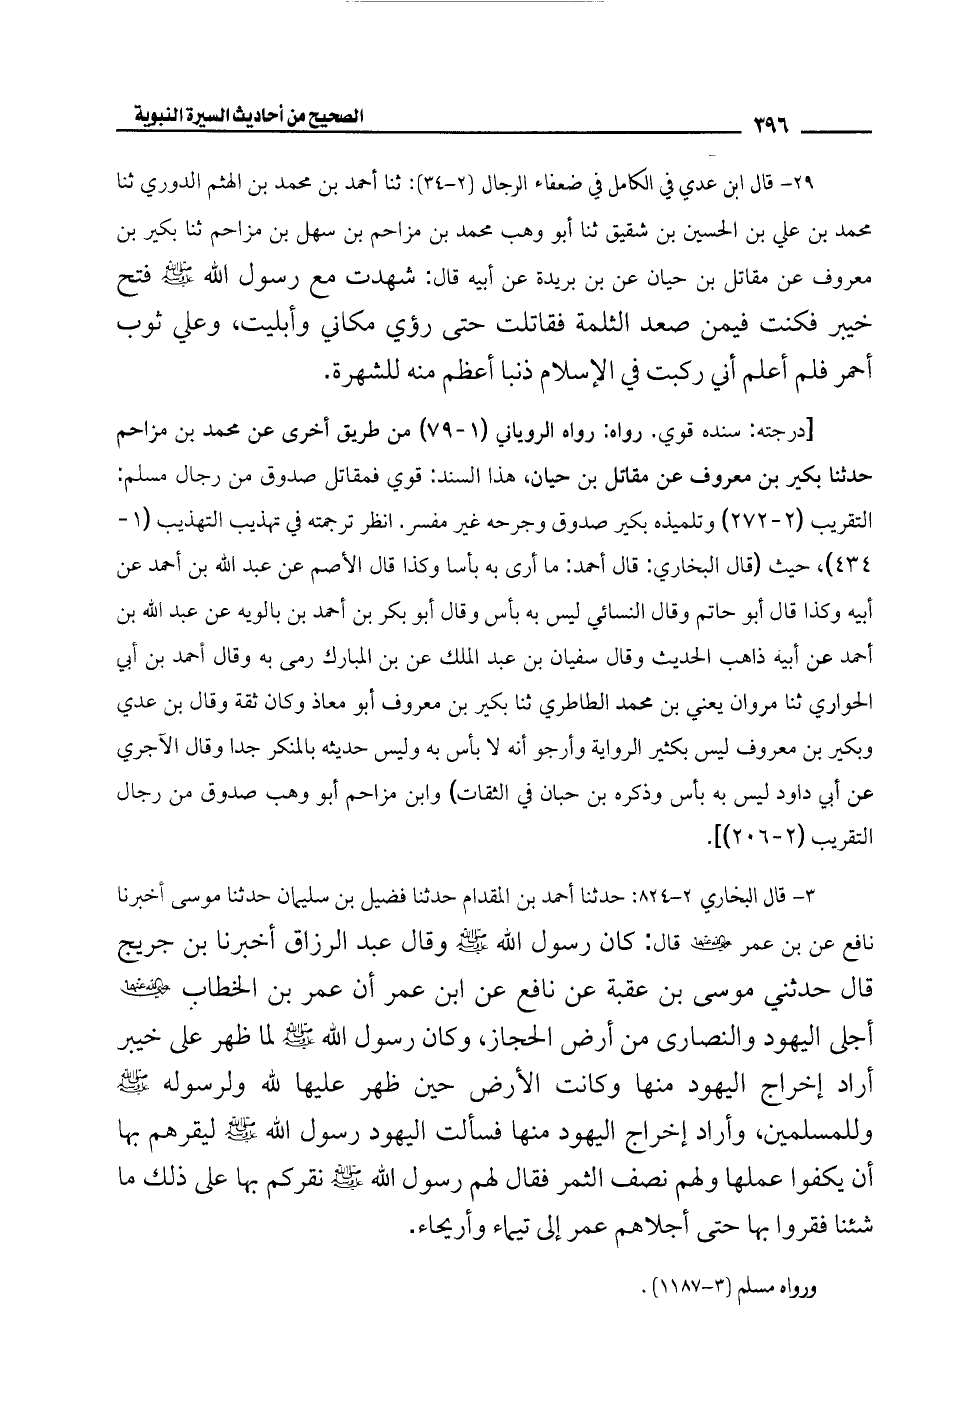 ٣٩٦ الصحيح من أحاديث السيرة النبوية
٢٩- قال ابن عدي في الكامل في ضعفاء الرجال (٢-٣٤): ثنا أحمد بن محمد بن الهثم الدوري ثنا
محمد بن علي بن الحسين بن شقيق ثنا أبو وهب محمد بن مزاحم بن سهل بن مزاحم ثنا بكير بن
معروف عن مقاتل بن حيان عن بن بريدة عن أبيه قال: شهدت مع رسول الله ﷺ فتح
خيبر فكنت فيمن صعد الثلمة فقاتلت حتى رؤي مكاني وأبليت، وعلي ثوب
أحمر فلم أعلم أني ركبت في الإسلام ذنبا أعظم منه للشهرة.
[درجته: سنده قوي. رواه: رواه الروياني (١-٧٩) من طريق أخرى عن محمد بن مزاحم
حدثنا بكير بن معروف عن مقاتل بن حيان، هذا السند: قوي فمقاتل صدوق من رجال مسلم:
التقريب (٢-٢٧٢) وتلميذه بكير صدوق وجرحه غير مفسر. انظر ترجمته في تهذيب التهذيب (١-
٤٣٤)، حيث (قال البخاري: قال أحمد: ما أرى به بأسا وكذا قال الأصم عن عبد الله بن أحمد عن
أبيه وكذا قال أبو حاتم وقال النسائي ليس به بأس وقال أبو بكر بن أحمد بن بالويه عن عبد الله بن
أحمد عن أبيه ذاهب الحديث وقال سفيان بن عبد الملك عن بن المبارك رمى به وقال أحمد بن أبي
الحواري ثنا مروان يعني بن محمد الطاطري ثنا بكير بن معروف أبو معاذ وكان ثقة وقال بن عدي
وبكير بن معروف ليس بكثير الرواية وأرجو أنه لا بأس به وليس حديثه بالمنكر جدا وقال الآجري
عن أبي داود ليس به بأس وذكره بن حبان في الثقات) وابن مزاحم أبو وهب صدوق من رجال
التقريب (٢-٢٠٦)].
٣- قال البخاري ٢-٨٢٤: حدثنا أحمد بن المقدام حدثنا فضيل بن سليمان حدثنا موسى أخبرنا
نافع عن بن عمر رضي الله عنهما قال: كان رسول الله ﷺ وقال عبد الرزاق أخبرنا بن جريج
قال حدثني موسى بن عقبة عن نافع عن ابن عمر أن عمر بن الخطاب رضي الله عنهما
أجلى اليهود والنصارى من أرض الحجاز، وكان رسول الله ﷺ لما ظهر على خيبر
أراد إخراج اليهود منها وكانت الأرض حين ظهر عليها لله ولرسوله ﷺ
وللمسلمين، وأراد إخراج اليهود منها فسألت اليهود رسول الله ﷺ ليقرهم بها
أن يكفوا عملها ولهم نصف الثمر فقال لهم رسول الله ﷺ نقركم بها على ذلك ما
شئنا فقروا بها حتى أجلاهم عمر إلى تيماء وأريحاء.
ورواه مسلم (٣-١١٨٧).